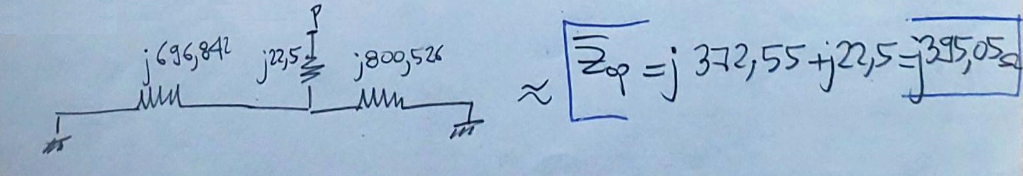 P
j696,842 j22,5 j800,526
≈ Z̅op = j 372,55 + j22,5 = j395,05Ω